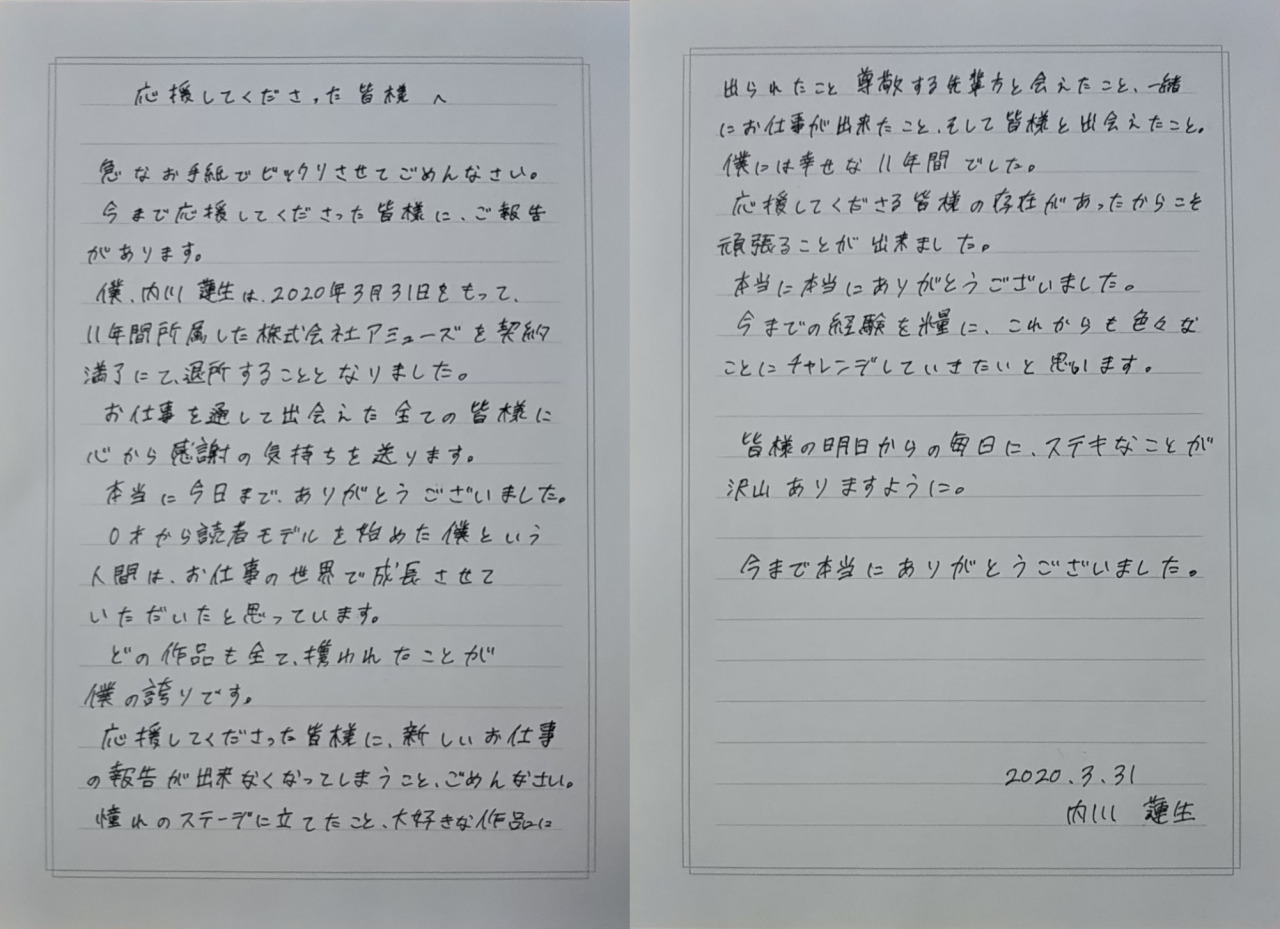 応援してくださった皆様へ
急なお手紙でビックリさせてごめんなさい。
今まで応援してくださった皆様に、ご報告
があります。
僕、内川 蓮生は、2020年3月31日をもって、
11年間所属した株式会社アミューズを契約
満了にて、退所することとなりました。
お仕事を通して出会えた全ての皆様に
心から感謝の気持ちを送ります。
本当に今日まで、ありがとうございました。
0才から読者モデルを始めた僕という
人間は、お仕事の世界で成長させて
いただいたと思っています。
どの作品も全て、携われたことが
僕の誇りです。
応援してくださった皆様に、新しいお仕事
の報告が出来なくなってしまうこと、ごめんなさい。
憧れのステージに立てたこと、大好きな作品に
出られたこと 尊敬する先輩方と会えたこと、一緒
にお仕事が出来たこと、そして皆様と出会えたこと。
僕には幸せな11年間でした。
応援してくださる皆様の存在があったからこそ
頑張ることが出来ました。
本当に本当にありがとうございました。
今までの経験を糧に、これからも色々な
ことにチャレンジしていきたいと思います。
皆様の明日からの毎日に、ステキなことが
沢山ありますように。
今まで本当にありがとうございました。
2020.3.31
内川 蓮生